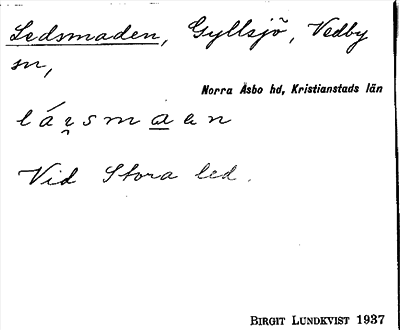 Ledsmaden, Gyllsjö, Vedby
sn,
Norra Åsbo hd, Kristianstads län
láe̯smaen
Vid Stora led.
BIRGIT LUNDKVIST 1937